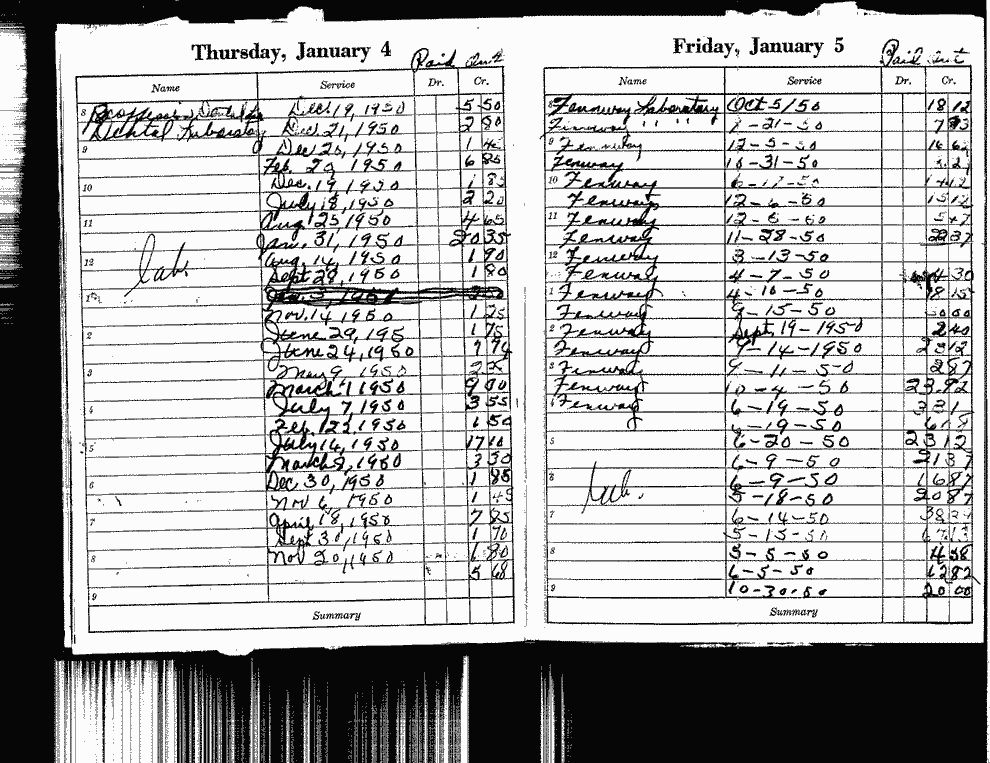 Thursday, January 4
Paid Out
Name Service Dr. Cr.
8 Dec. 19, 1950 5 50
Dental Laboratory Dec. 21, 1950 2 80
9 Dec 20, 1950 1
Feb. 1950 6 85
10 Dec. 19, 1950 1 85
July 18, 1950 2 20
11 Aug. 25, 1950 4 65
Jan. 31, 1950 20 35
12 Aug. 14, 1950 1 90
lab. Sept 28, 1950 1 80
1
Nov. 14 1950 1 25
2 June 29, 195 1 75
June 24, 1950 7 74
3 May 9, 1950
March 1 1950 9 00
4 July 7, 1950 3 55
Feb. 1950 1 50
5 July 14, 1950 17 10
March 8, 1950 3 30
6 Dec 30, 1950 1 85
Nov 6, 1950 1 45
7 April 18, 1950 7 85
Sept 30, 1950 1 70
8 Nov 20, 1950 1 80
5 68
9
Summary
Friday, January 5
Paid Out
Name Service Dr. Cr.
8 Fennway Laboratory Oct 5/50 18 12
Fennway " " -21-50 7
9 Fennway 12-5-50 16 62
Fenway 10-31-50 3 2
10 Fenway 6-17-50
Fenway 12-6-50 15 12
11 Fenway 12-5-50 5 47
Fenway 11-28-50 37
12 Fenway 3-13-50
Fenway 4-7-50 4 30
1 Fenway 4-10-50 8 15
Fenway 9-15-50
2 Fenway Sept. 19-1950 2 40
Fenway 9-14-1950 23 12
3 Fenway 9-11-50 2 87
Fenway 10-4-50 23.92
4 Fenway 6-19-50 3 31
6-19-50 6
5 6-20-50 23 12
6-9-50 21 37
6 6-9-50 16 87
lab. 5-18-50 20 87
7 6-14-50 38
5-15-50 67 13
8 5-5-50 4 58
6-5-50 12 82
9 10-30-50 20 00
Summary